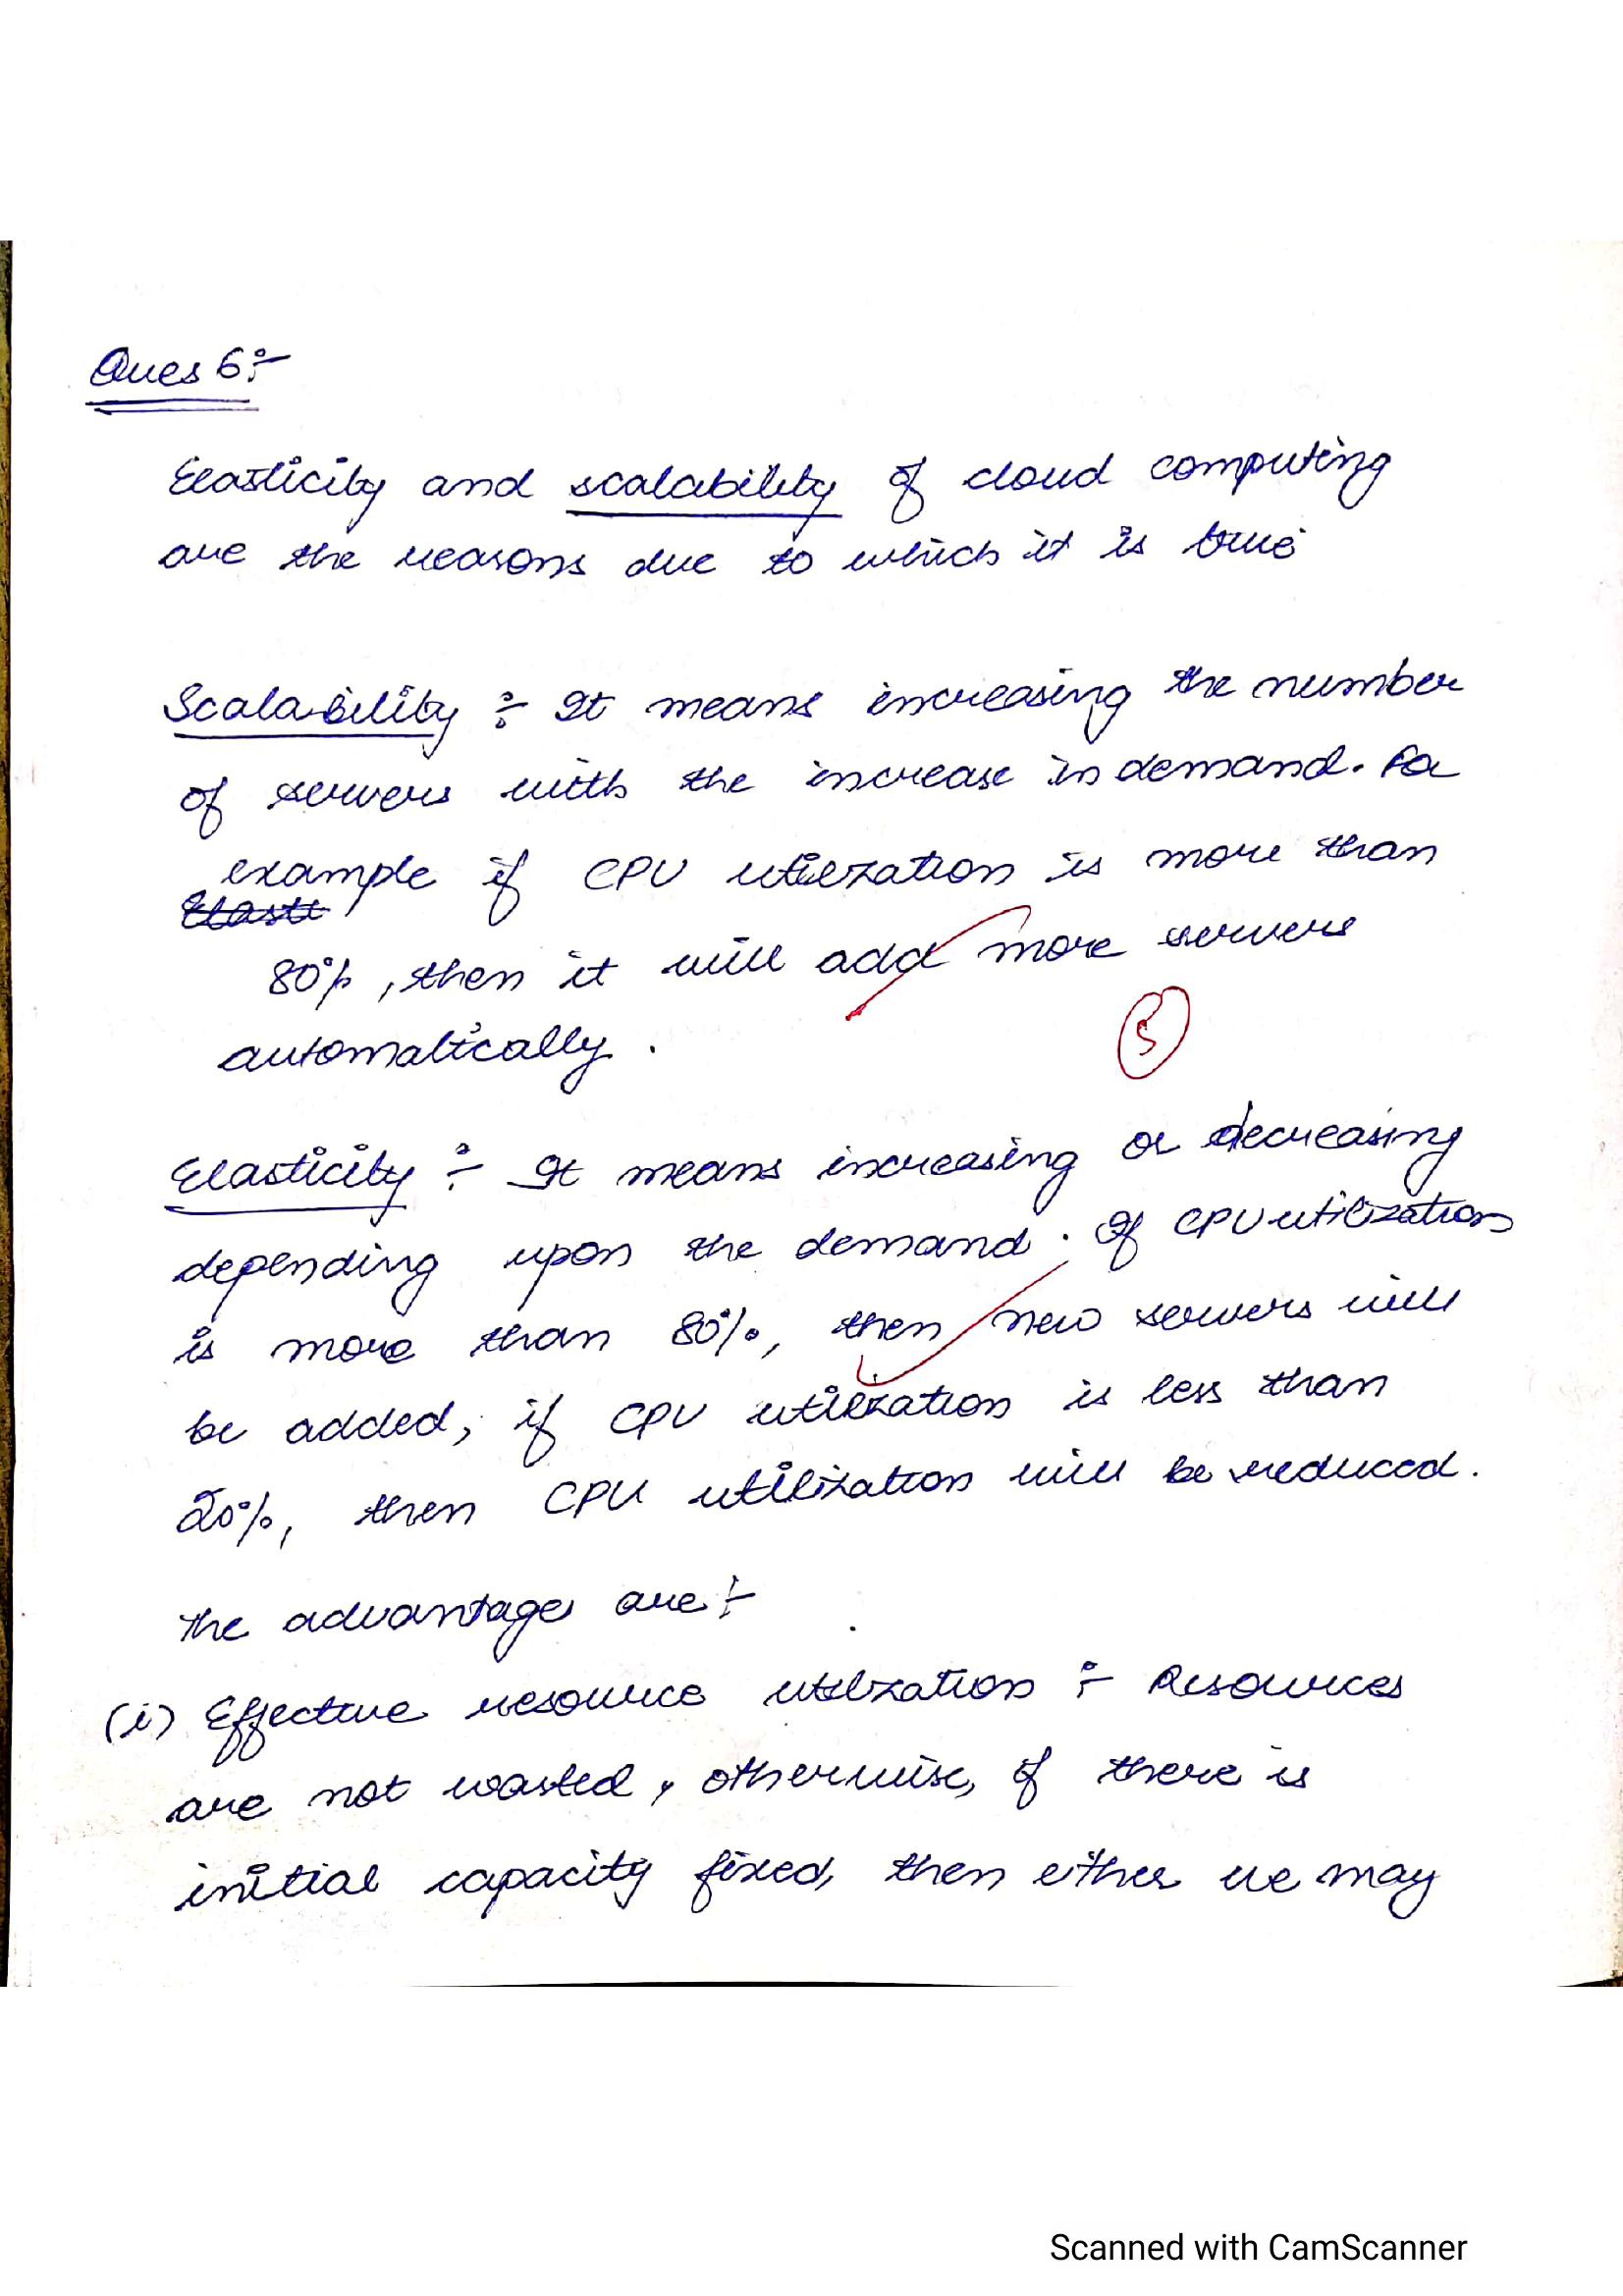 Ques 6:-
Elasticity and scalability of cloud computing
are the reasons due to which it is true
Scalability :- It means increasing the number
of servers with the increase in demand. For
example if CPU utilization is more than
80%, then it will add more servers
5
automatically.
Elasticity :- It means increasing or decreasing
depending upon the demand. If CPU utilization
is more than 80%, then new servers will
be added, if CPU utilization is less than
20%, then CPU utilization will be reduced.
The advantages are :-
(i) Effective resource utilization :- Resources
are not wasted, otherwise, if there is
initial capacity fixed, then either we may
Scanned with CamScanner